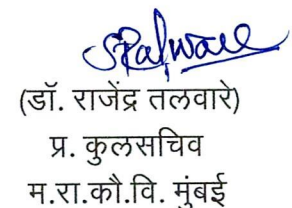 (डॉ. राजेंद्र तलवारे)
प्र. कुलसचिव
म.रा.कौ.वि. मुंबई